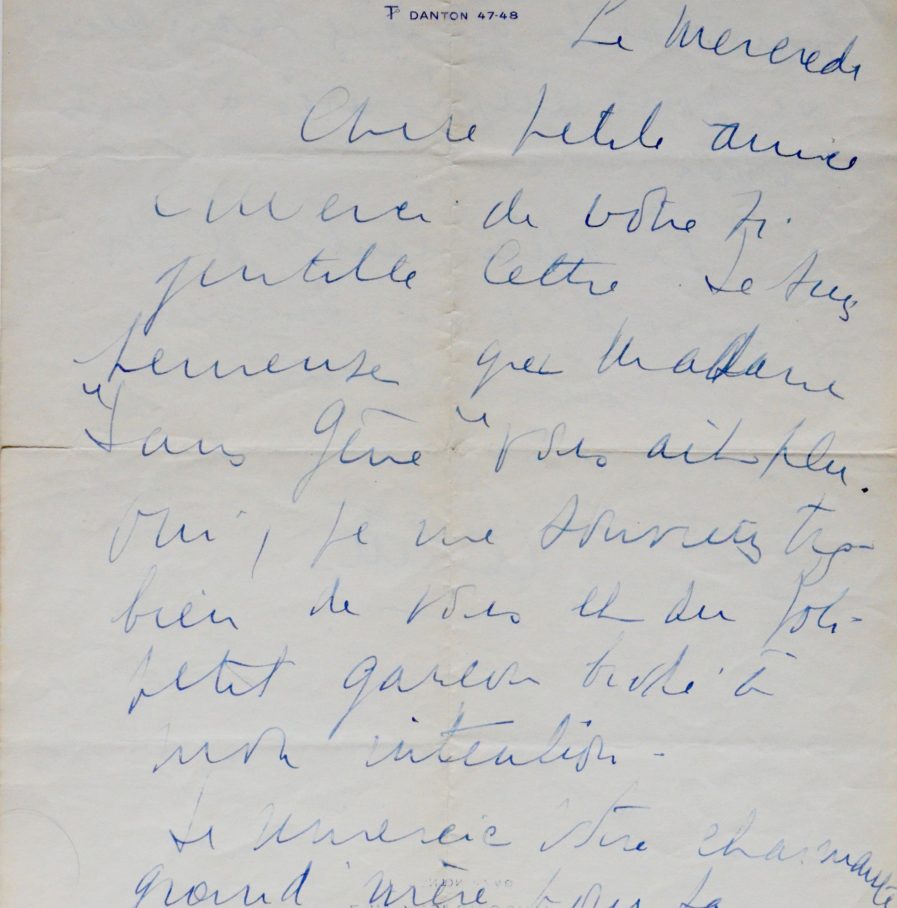 TP DANTON 47-48
Le Mercredi
Chère petite amie
Merci de votre si
gentille lettre. Je suis
heureuse que Madame
"Sans Gêne" vous ait plu.
Oui, je me souviens très
bien de vous et du joli
petit garçon brodé à
mon intention -
Je remercie votre charmante
grand'mère pour sa